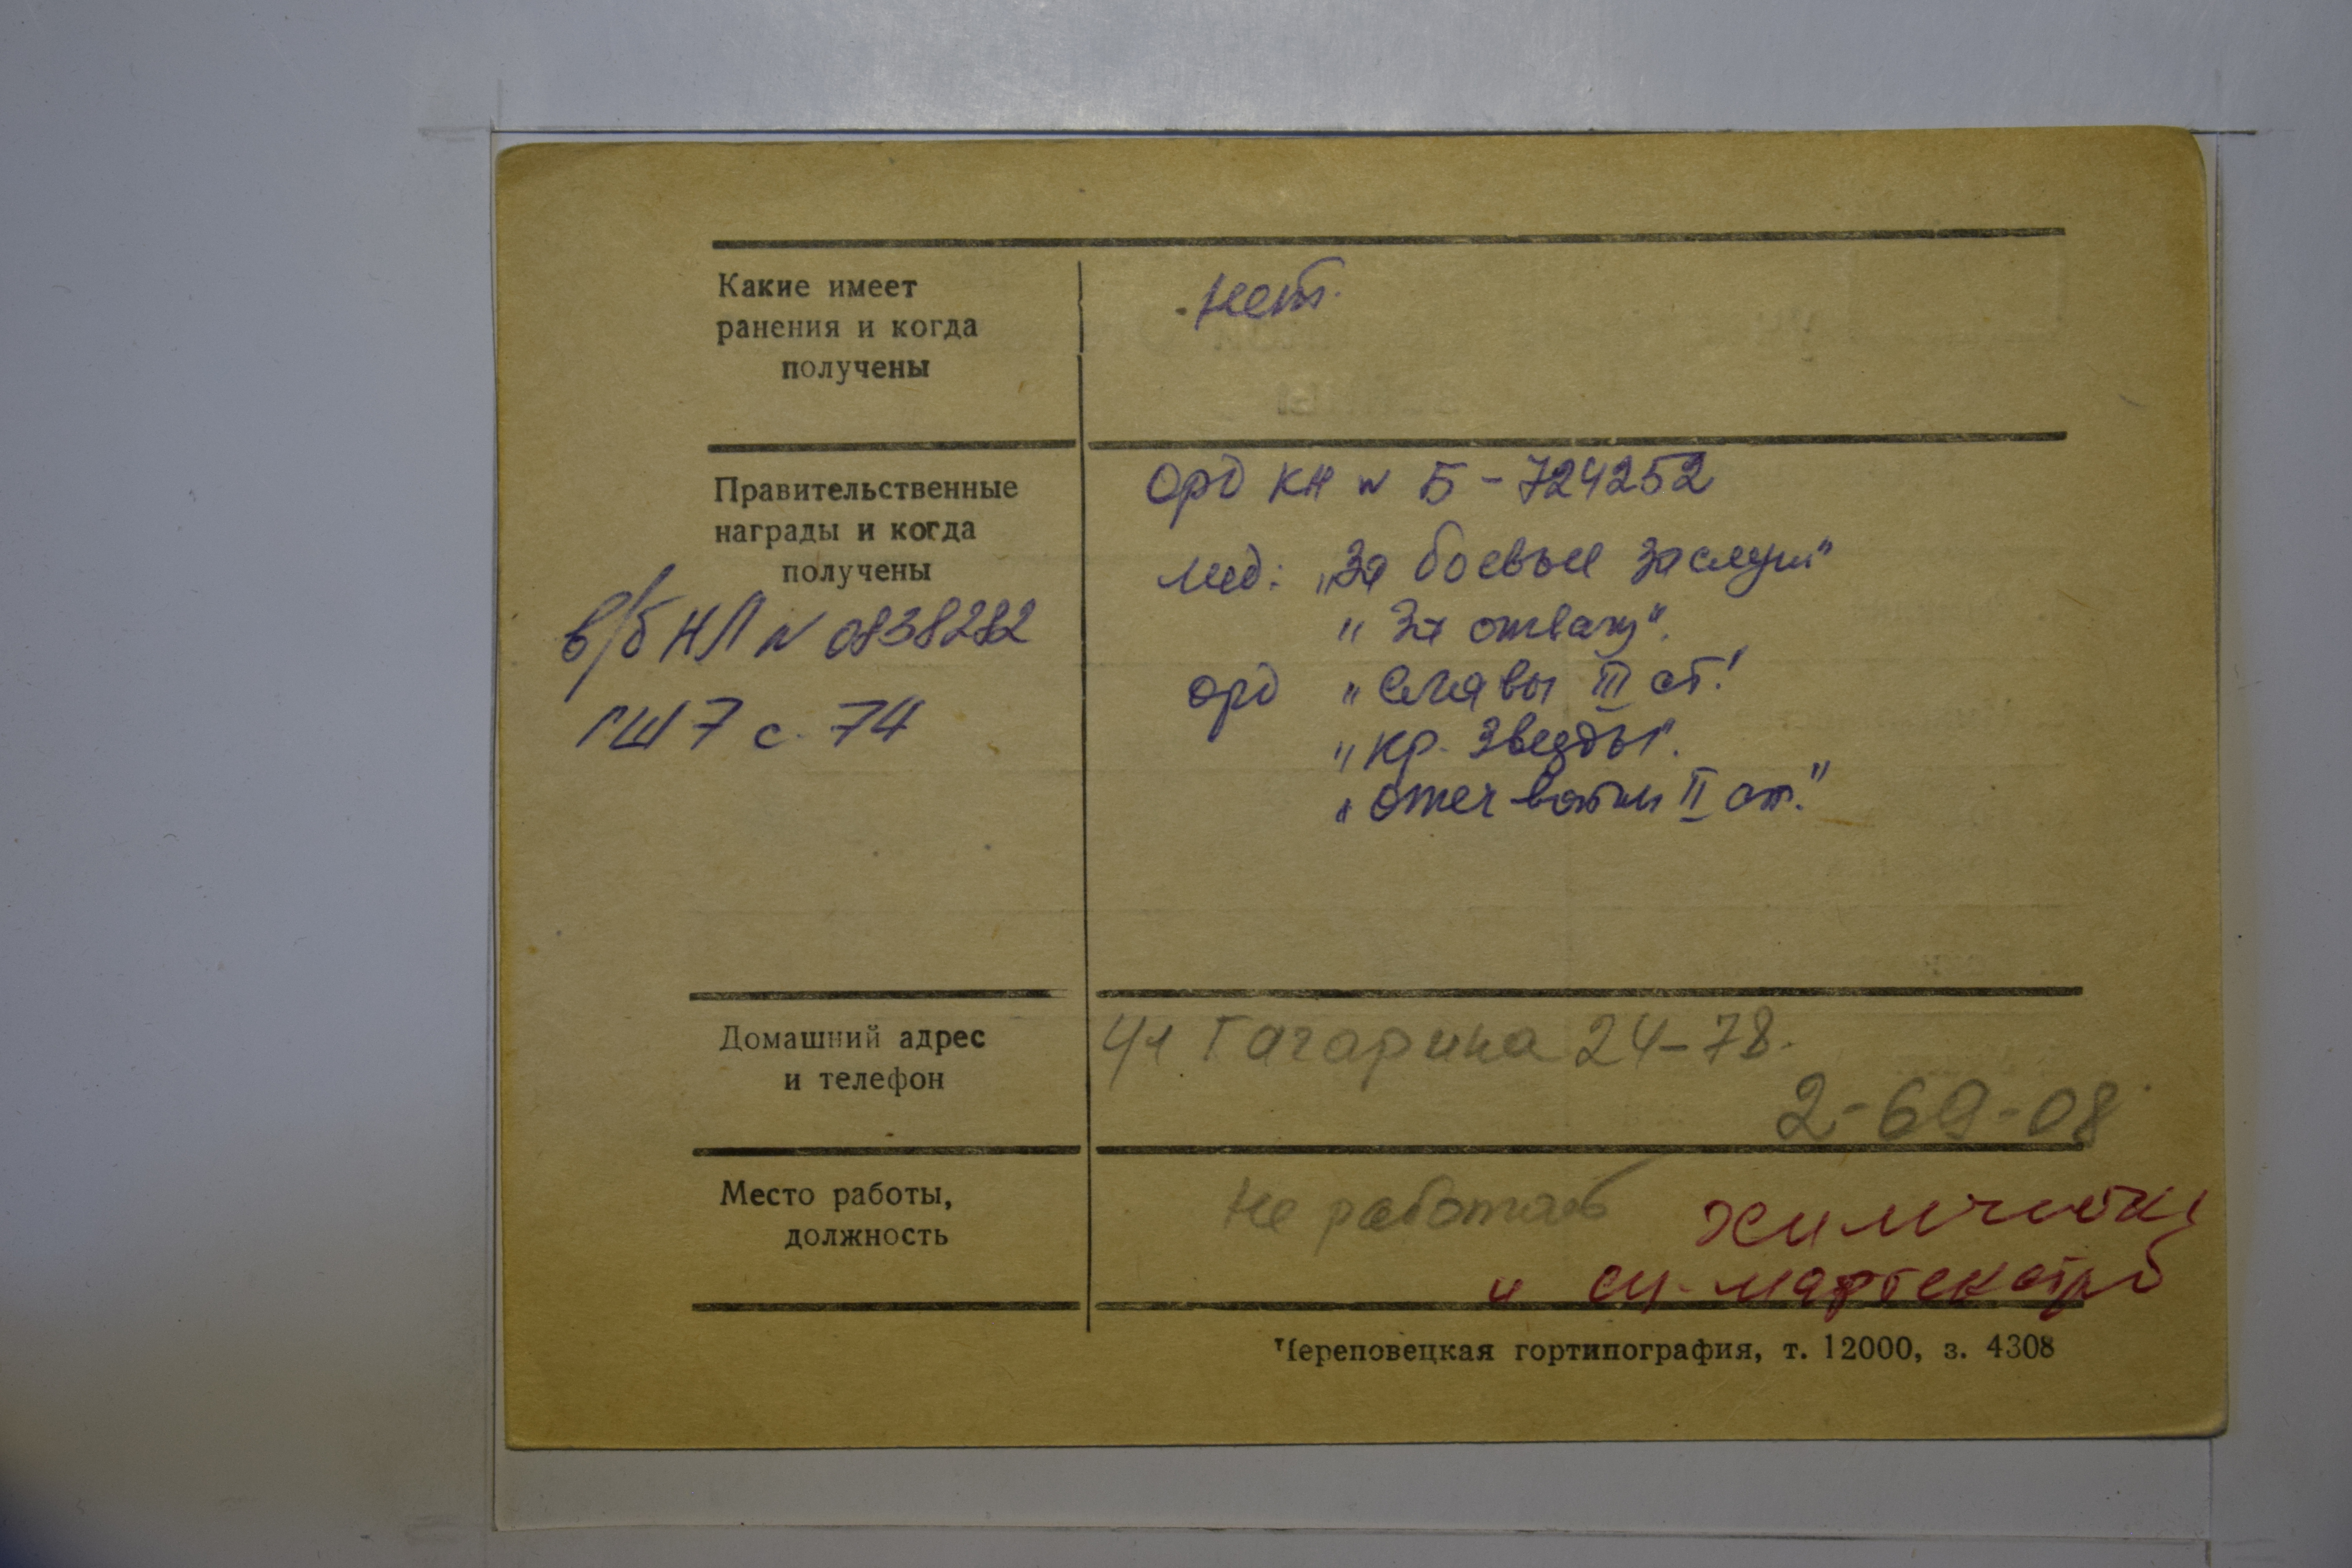 Какие имеет
ранения и когда
получены
нет.
Правительственные
награды и когда
получены
орд КН № Б-724252
мед: „За боевые заслуги"
„За отвагу".
орд „Славы III ст."
„Кр. Звезды".
„Отеч войны II ст."
в/б НЛ № 0838282
ГШ 7 с. 74
Домашний адрес
и телефон
ул Гагарина 24-78.
2-69-08
Место работы,
должность
Не работает
химчистка
и
Череповецкая гортипография, т. 12000, з. 4308